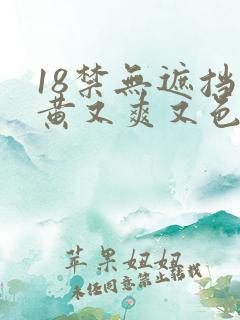 18禁無遮挡
黄又爽又色
苹果妞妞
未经同意禁止转载